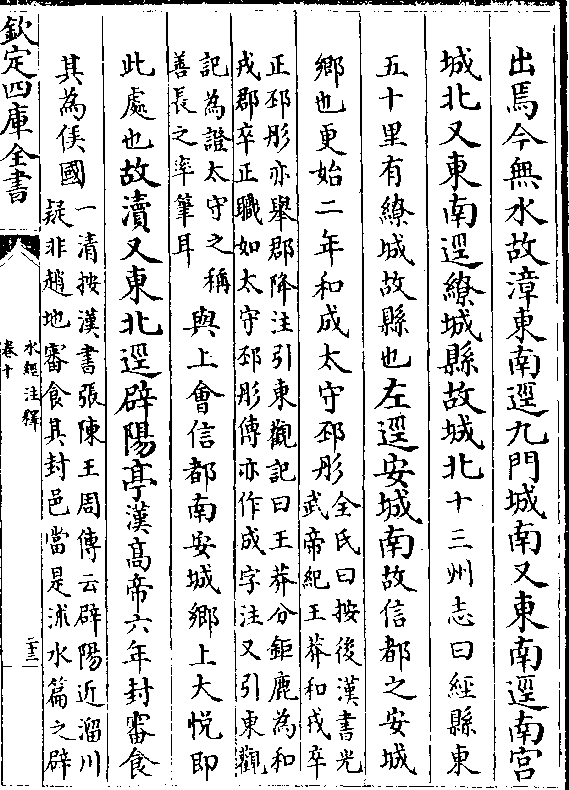 出焉今無水故漳東南逕九門城南又東南逕南宮
城北又東南逕繚城縣故城北十三州志曰經縣東
五十里有繚城故縣也左逕安城南故信都之安城
鄉也更始二年和成太守邳彤
全氏曰按後漢書光
武帝紀王莽和戎卒
正邳彤亦舉郡降注引東觀記曰王莽分鉅鹿為和
戎郡卒正職如太守邳彤傳亦作成字注又引東觀
記為證太守之稱
善長之率筆耳
與上會信都南安城鄉上大悅即
此處也故瀆又東北逕辟陽亭漢高帝六年封審食
其為侯國
一清按漢書張陳王周傳云辟陽近溜川
疑非趙地審食其封邑當是沭水篇之辟
欽定四庫全書
水經注釋
卷十
二十三